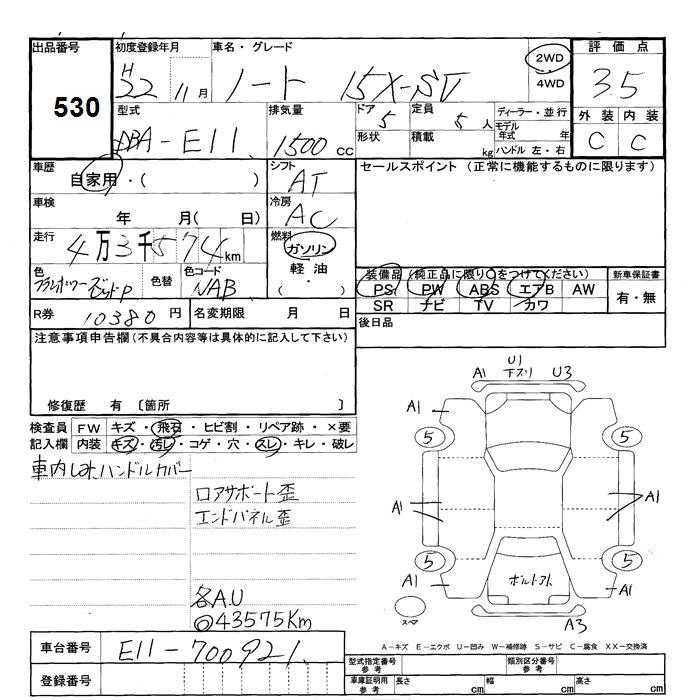 出品番号
530
初度登録年月
H
22 11月
車名・グレード
ノート 15X-SV
2WD
4WD
評価点
3.5
外装 内装
C C
型式
DBA-E11
排気量
1500 cc
ドア
5
定員
5人
形状
積載
kg
ディーラー・並行
モデル
年式 年
ハンドル 左・右
車歴
自家用・( )
シフト
AT
セールスポイント (正常に機能するものに限ります)
車検
年 月( 日)
冷房
AC
走行
4万3千574km
燃料
ガソリン
軽油
・
( )
色
色替
色コード
NAB
装備品 (純正品に限り○をつけてください)
PS PW ABS エアB AW
SR ナビ TV カワ
新車保証書
有・無
R券
10380円
名変期限 月 日
後日品
注意事項申告欄(不具合内容等は具体的に記入して下さい)
修復歴 有 〔箇所 〕
検査員
記入欄
FW キズ・飛石・ヒビ割・リペア跡・×要
内装 キズ・汚レ・コゲ・穴・スレ・キレ・破レ
車内しみ、ハンドルカバー
ロアサポート歪
エンドパネル歪
各A.U
◎43575Km
U1
A1 下スリ U3
A1
5 5
A1 A1
5 5
A1 A1
ボルト欠
スペア
A3
A-キズ E-エクボ U-凹み W-補修跡 S-サビ C-腐食 XX-交換済
車台番号
E11-700921
登録番号
型式指定番号
参考
類別区分番号
参考
車庫証明用
参考
長さ cm 幅 cm 高さ cm